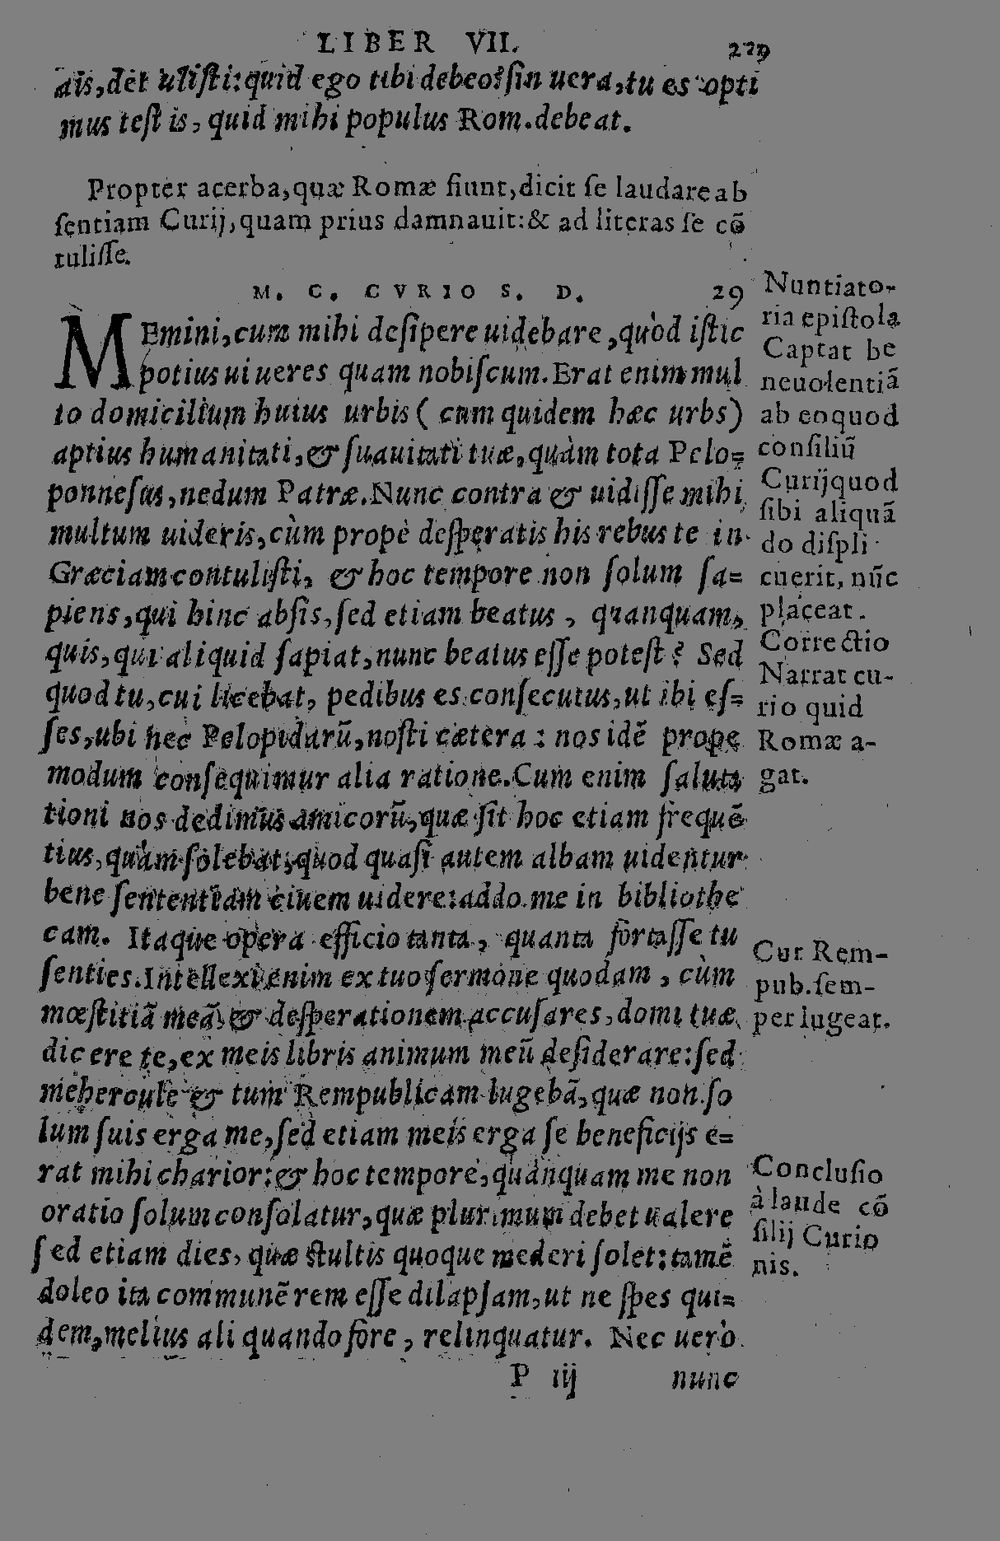 LIBER VII. 229
dis, det ulisti: quid ego tibi debeo? sin uera, tu es opti
mus testis, quid mihi populus Rom. debeat.
Propter acerba, quæ Romæ fiunt, dicit se laudare ab
sentiam Curij, quam prius damnauit: & ad literas se cō
tulisse.
M. C. CVRIO S. D. 29
MEmini, cum mihi desipere uidebare, quòd istic
potius uiueres quam nobiscum. Erat enim mul
to domicilium huius urbis (cum quidem hæc urbs)
aptius humanitati, & suauitati tuæ, quàm tota Pelo=
ponnesus, nedum Patræ. Nunc contra & uidisse mihi
multum uideris, cùm propè desperatis his rebus te in
Græciam contulisti, & hoc tempore non solum sa=
piens, qui hinc absis, sed etiam beatus, quanquam,
quis, qui aliquid sapiat, nunc beatus esse potest? Sed
quod tu, cui licebat, pedibus es consecutus, ut ibi es=
ses, ubi nec Pelopidarū, nosti cætera: nos idē prope
modum consequimur alia ratione. Cum enim saluta
tioni nos dedimus amicorū, quæ fit hoc etiam frequē
tius, quàm solebat, quod quasi autem albam uidentur
bene sententiam ciuem uidere: addo me in bibliothe
cam. Itaque opera efficio tanta, quanta fortasse tu
senties. Intellexi enim ex tuo sermone quodam, cùm
mœstitiā meā, & desperationem accusares, domi tuæ,
dicere te, ex meis libris animum meū desiderare: sed
mehercule & tum Rempublicam lugebā, quæ non so
lum suis erga me, sed etiam meis erga se beneficijs e=
rat mihi charior: & hoc tempore, quanquam me non
oratio solum consolatur, quæ plurimum debet ualere
sed etiam dies, quæ stultis quoque mederi solet: tamē
doleo ita communē rem esse dilapsam, ut ne spes qui=
dem, melius aliquando fore, relinquatur. Nec uerò
P iij nunc
Nuntiato-
ria epistola
Captat be
neuolentiā
ab eo quod
consiliū
Curij quod
sibi aliquā
do displi
cuerit, nūc
placeat.
Correctio
Narrat cu-
rio quid
Romæ a-
gat.
Cur Rem-
pub. sem-
per lugeat.
Conclusio
à laude cō
silij Curio
nis.